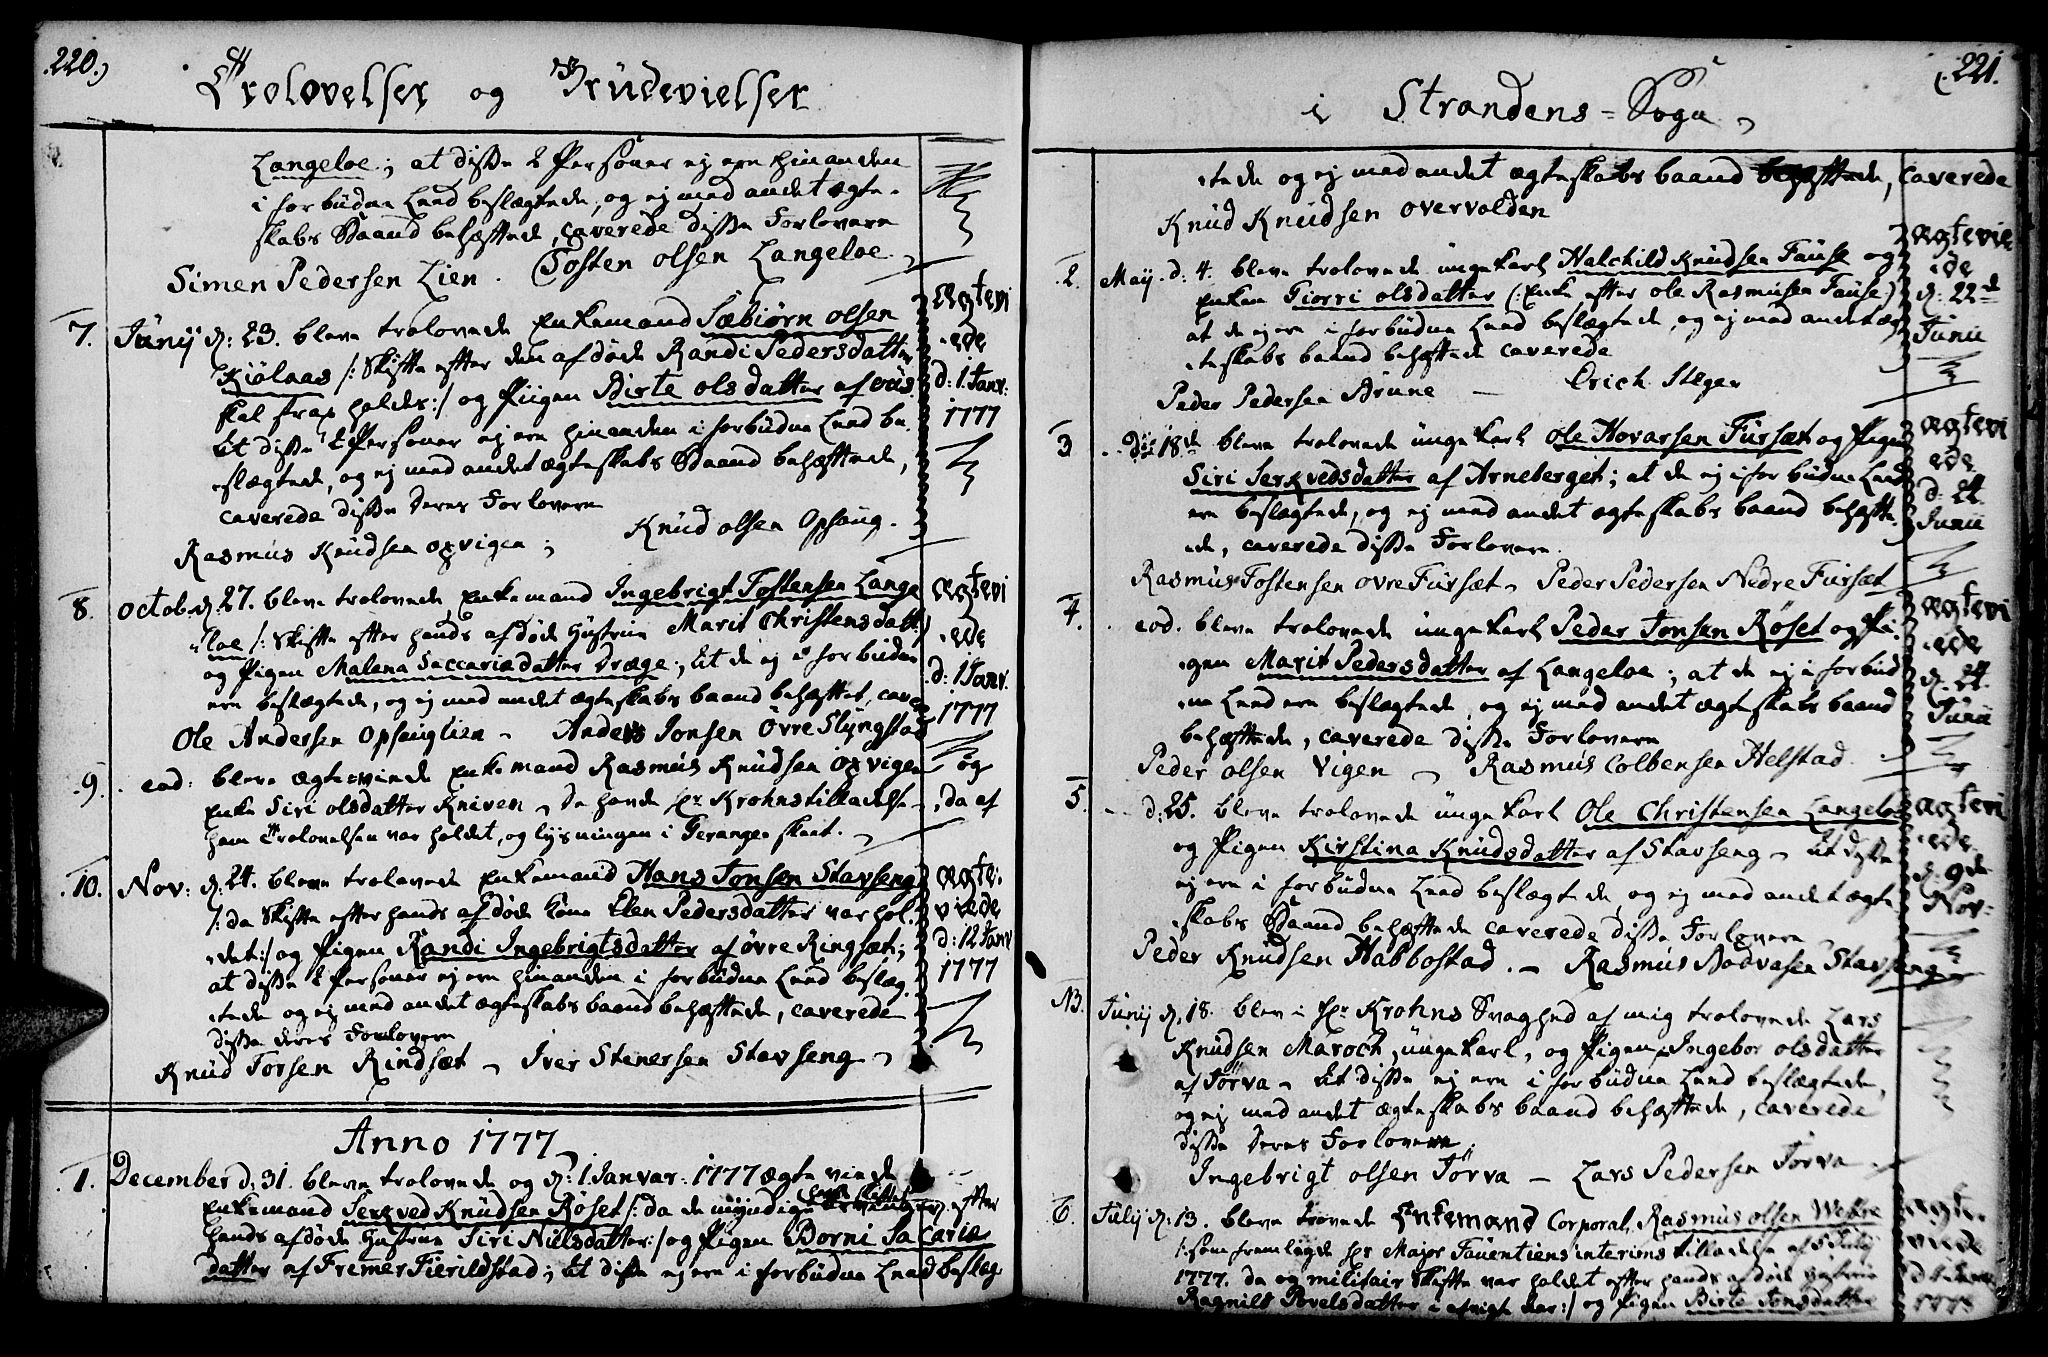 220.)
Trolovelser og Brudevielser
Langeloe; at disse 2 Personer ej ere hinanden
i forbudne Leed beslægtede, og ej med andet ægte-
skabs Baand behæftede, caverede disse Forlovere
Simen Pedersen Lien. Tosten olsen Langeloe
7. Junij d: 23. bleve trolovede Enkemand Sæbiørn olsen
Kiølaas /: Skifte efter den afdøde Randi Pedersdatter
skal strax holdes :/ og Pigen Birte olsdatter af
At disse 2 Personer ej ere hinanden i forbudne Leed be-
slægtede, og ej med andet ægteskabs Baand behæftede,
caverede disse deres Forlovere
Rasmus Knudsen oxvigen; Knud olsen Opsaug.
ægtevi
ede
d: 1 Janr:
1777
8. octob. d. 27. bleve trolovede Enkemand Ingebrigt Tostensen Lange
loe /: Skifte efter hands afdøde Hustrue Marit Christensdatt:
og Pigen Malena Saccariædatter Dræge; At de ej i forbuden
ere beslægtede, og ej med andet ægteskabs baand behæftet, cave
Ole Andersen Opsauglien - Anders Jonsen Øvre Slyngstad
ægtevi
ede
d: 1 Janv.
1777
9. eod: bleve ægteviede Enkemand Rasmus Knudsen oxvigen og
Enke Siri olsdatter Kniven - De havde hr Krohns tilladelse, da af
ham Trolovelsen var holdet, og lysningen i Geranger skeet.
10. Nov: d: 24. bleve trolovede Enkemand Hans Jonsen Stavseng
/: da Skifte efter hands afdøde Kone Elen Pedersdatter var hol-
det :/ og Pigen Randi Ingebrigtsdatter af øvre Ringsæt;
at disse 2 Personer ej ere hinanden i forbudne Leed beslæg
tede og ej med andet ægteskabs baand behæftede, caverede
disse deres Forlovere
Knud Torsen Rindsæt - Iver Stenersen Stavseng
ægte-
viede
d: 12 Janv
1777
Anno 1777
1. December d: 31. bleve trolovede og d: 1 Janvar: 1777 ægteviede
Enkemand Serkved Knudsen Røset /: da de myndige efter
hands afdøde Hustrue Siri Nielsdatter :/ og Pigen Borni Sacariæ
datter af Fremer Fierildstad; At disse ej ere i forbudne Leed beslæg
221.
i Strandens-Sogn
tede og ej med andet ægteskabs baand behæftede, caverede
Knud Knudsen overvolden
2. Maij d: 4. bleve trolovede ungekarl Halchild Knudsen Fause og
Enken Giorri olsdatter (: Enke efter ole Rasmusen Fause)
at de ej ere i forbudne Leed beslægtede, og ej med andet æg
teskabs baand behæftede caverede
Peder Pedersen Brune - Erich Steger
ægtevie
de
d: 22de
Junii
3. d: 18de bleve trolovede ungekarl Ole Hovarsen Fursæt og Pigen
Siri Serkvedsdatter af Arneberget; at de ej i forbudne Leed
ere beslægtede, og ej med andet ægteskabs baand behæfte
de, caverede disse Forlovere
Rasmus Tostensen øvre Fursæt - Peder Pedersen Nedre Fursæt
ægtevi
ede
d: 24
Junii
4. eod. bleve trolovede ungekarl Peder Jonsen Røset og Pi-
gen Marit Pedersdatter af Langeloe; at de ej i forbud
ne Leed ere beslægtede, og ej med andet ægteskabs baand
behæftede, caverede disse Forlovere
Peder olsen Vigen - Rasmus Colbensen Helstad
ægtevi
ede
d. 24.
Junii
5. d: 25. bleve trolovede ungekarl Ole Christensen Langeloe
og Pigen Kirstina Knudsdatter af Stavseng - At disse
ej ere i forbudne Leed beslægtede, og ej med andet ægte
skabs Baand behæftede caverede disse Forlovere
Peder Knudsen Habbostad. - Rasmus Bodvasen Stavseng
ægtevi
ede
d: 9de
Nov:
NB. Junij d. 18. blev i hr Krohns Svaghed af mig trolovede Lars
Knudsen Maroch, ungekarl, og Pigen Ingebor olsdatter
af Tørva - At disse ej ere i forbudne Leed beslægtede,
og ej med andet ægteskabs baand behæftede, caverede
disse deres Forlovere
Ingebrigt olsen Tørva - Lars Pedersen Tørva
6. Julij d: 13. bleve trovede Enkemand Corporal Rasmus olsen Webre
/: som fremlagde hr Major Fauentiens interims tilladelse af
1777. da og militair Skifte var holdet efter hands afdøde Hustrue
Ragnild Povelsdatter i afvigte Aar :/ og Pigen Birte Jonsdatter
ægte-
viede